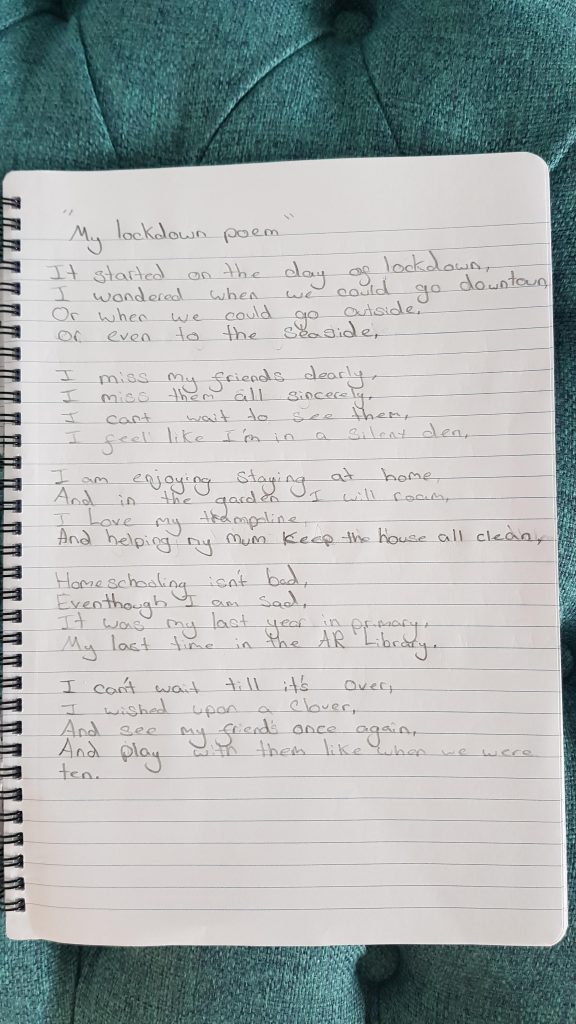 "My lockdown poem"
It started on the day of lockdown,
I wondered when we could go downtown,
Or when we could go outside,
or even to the seaside,
I miss my friends dearly,
I miss them all sincerely,
I cant wait to see them,
I feel like I'm in a silent den,
I am enjoying staying at home,
And in the garden I will roam,
I Love my trampline,
And helping my mum keep the house all clean,
Homeschooling isn't bad,
Eventhough I am sad,
It was my last year in primary,
My last time in the AR Library.
I can't wait till it's over,
I wished upon a clover,
And see my friends once again,
And play with them like when we were
ten.